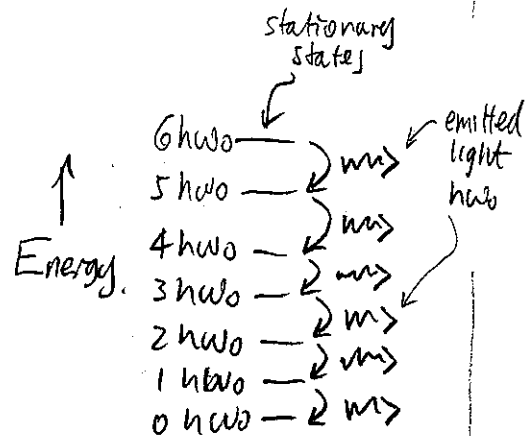 stationary
states
6hω₀
5hω₀
4hω₀
3hω₀
2hω₀
1hω₀
0hω₀
Energy.
emitted
light
hω₀